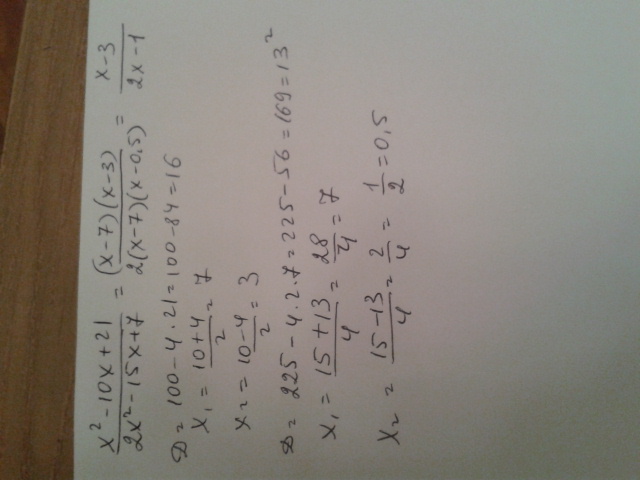 x²-10x+21 / 2x²-15x+7 = (x-7)(x-3) / 2(x-7)(x-0,5) = x-3 / 2x-1
D = 100-4·21=100-84=16
x₁ = 10+4 / 2 = 7
x₂ = 10-4 / 2 = 3
D = 225-4·2·7=225-56=169=13²
x₁ = 15+13 / 4 = 28 / 4 = 7
x₂ = 15-13 / 4 = 2 / 4 = 1 / 2 =0,5